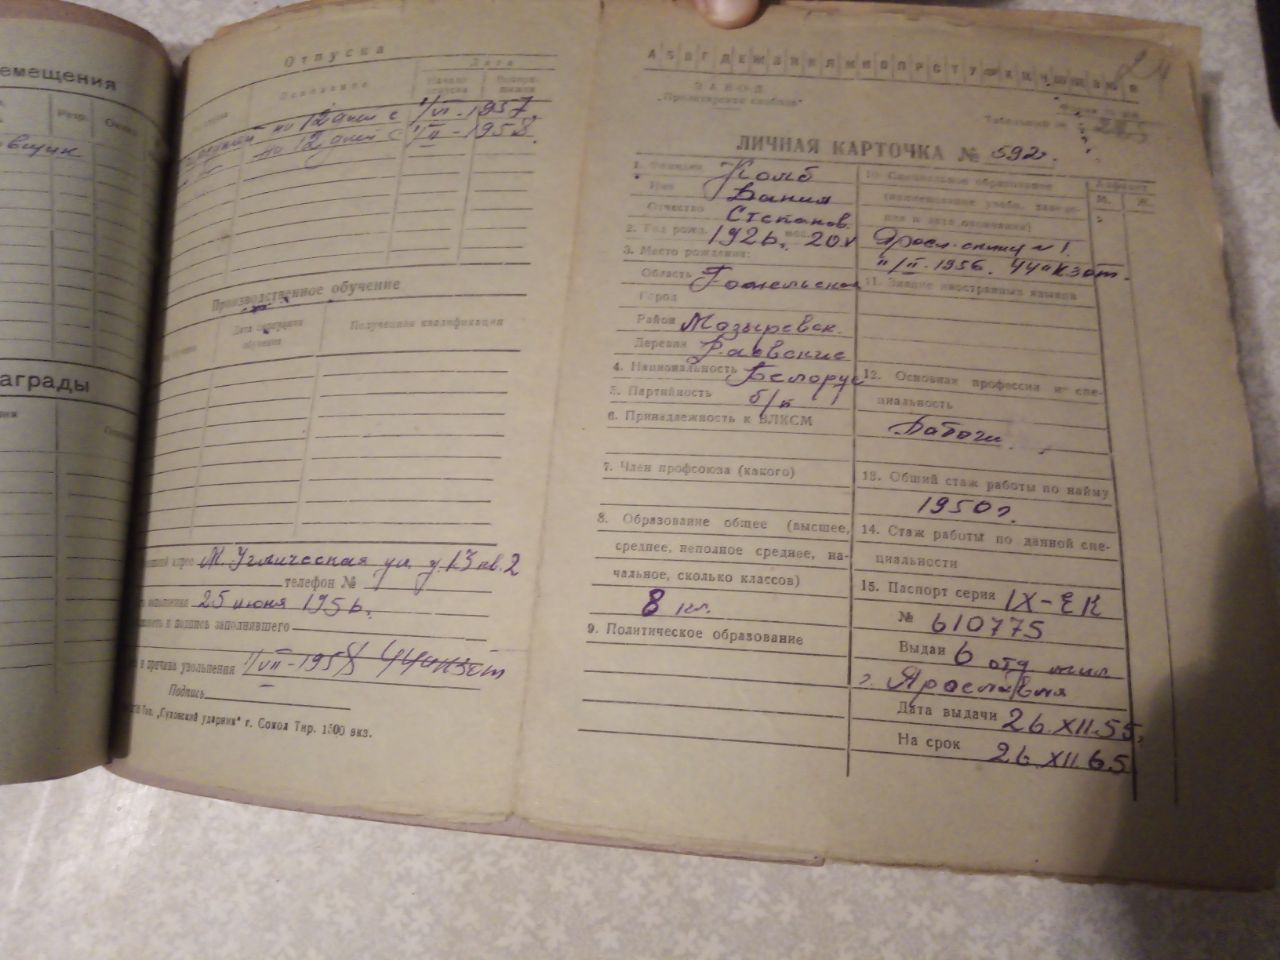 емещения
Разр.
овщик
аграды
Отпуска
Дата
Основание
Начало отпуска
на 12 дней с 1/VI-1957.
на 12 дней с 1/II-1958.
Производственное обучение
Дата окончания обучения
Полученная квалификация
адрес М. Угличская ул. д. 13 кв. 2
телефон №
25 июня 1956.
и подпись заполнившего
и причина увольнения 1/VII-1958 44 а Кзот
Подпись
Тип. „Сухонский ударник" г. Сокол Тир. 1500 экз.
А Б В Г Д Е Ж З И К Л М Н О П Р С Т У Ф Х Ц Ч Ш Щ Э Ю Я
ЗАВОД
„Пролетарская свобода"
Табельный №
ЛИЧНАЯ КАРТОЧКА № 592.
1. Фамилия
Имя
Отчество Степанов.
2. Год рожд. 1926. мес. 20.V
3. Место рождения:
Область Гомельская
Город
Район Мозыревск.
Деревня
4. Национальность Белорус
5. Партийность б/п
6. Принадлежность к ВЛКСМ
7. Член профсоюза (какого)
8. Образование общее (высшее,
среднее, неполное среднее, на-
чальное, сколько классов)
8 кл.
9. Политическое образование
10. Специальное образование
(наименование учебн. заве-
дения и дата окончания)
№ 1.
11/II-1956. 44 а Кзот.
11. Знание иностранных языков
12. Основная профессия и спе-
циальность
13. Общий стаж работы по найму
1950 г.
14. Стаж работы по данной спе-
циальности
15. Паспорт серия IX-ЕК
№ 610775
Выдан 6 отд. мил.
г. Ярославля
Дата выдачи 26.XII.55.
На срок 26.XII.65.
Алфавит
М. Ж.